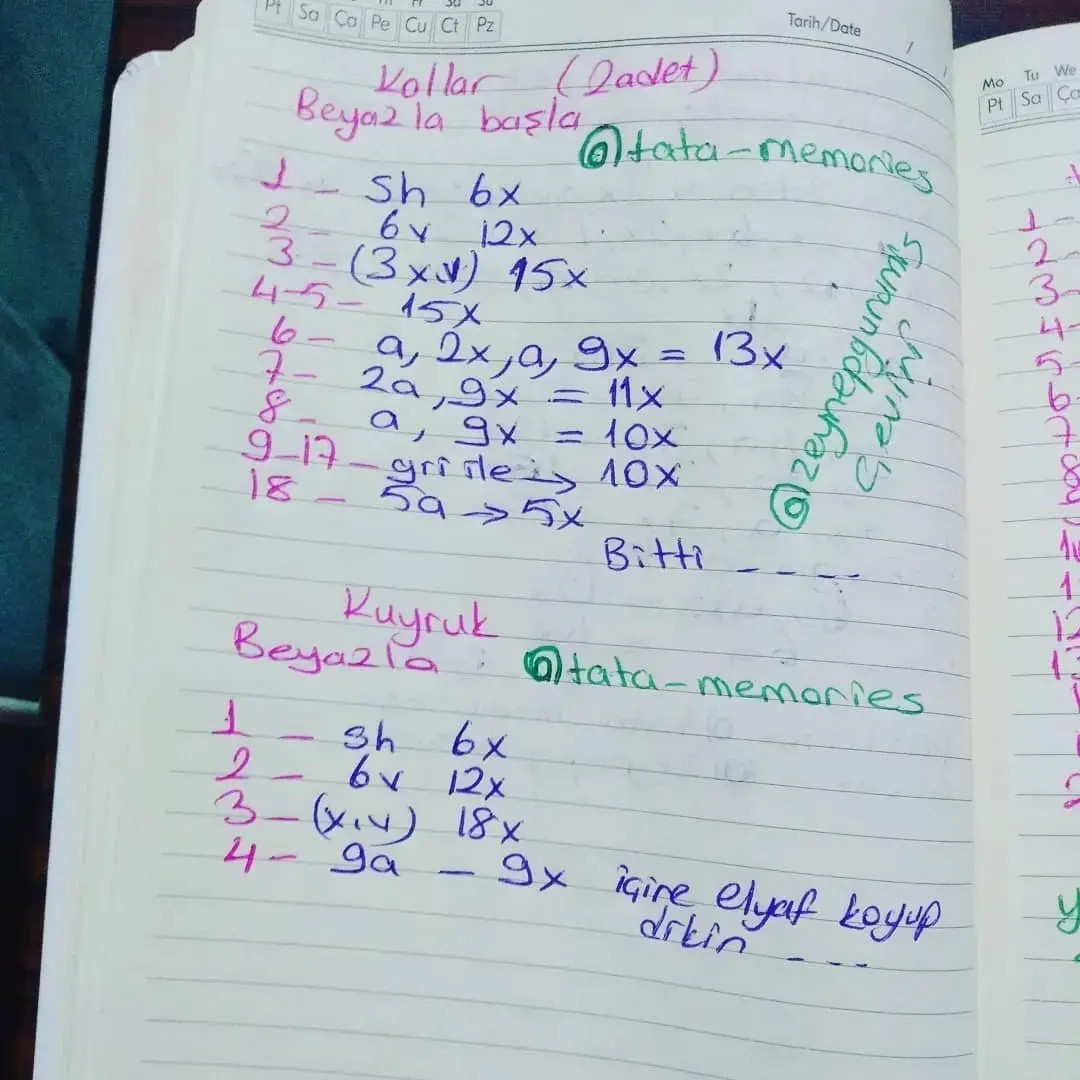 Mo Tu We
Pt Sa Ça Pe Cu Ct Pz
Tarih/Date
Pt Sa Ça
Kollar (2adet)
Beyazla başla
@tata-memories
1 - sh 6x
2 - 6v 12x
3 - (3x,v) 15x
4-5- 15x
6- a, 2x,a, 9x = 13x
7- 2a, 9x = 11x
8- a, 9x = 10x
9-17- gri ile → 10x
18 - 5a → 5x
Bitti ----
Kuyruk
Beyazla :
@tata-memories
1 - sh 6x
2 - 6v 12x
3- (x,v) 18x
4- 9a - 9x içine elyaf koyup
dikin ---
1-
2-
3-
4-
5-
6-
7
8